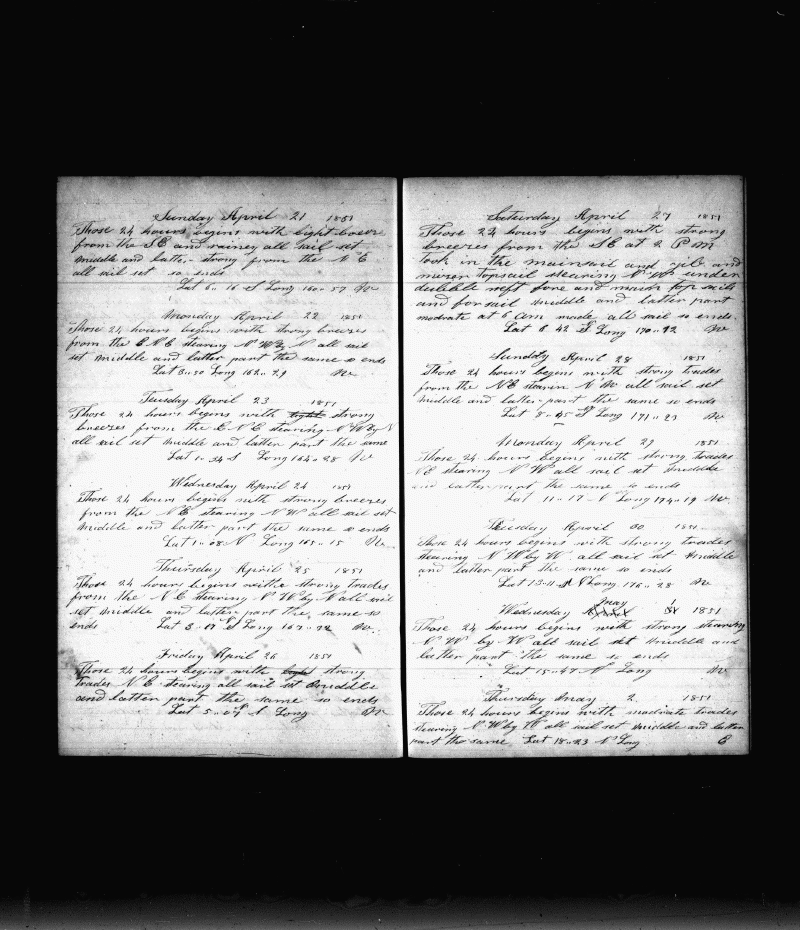 Sunday April 21 1851
Those 24 hours begins with light breeze
from the SE and rainey all sail set
middle and latter strong from the N E
all sail set so ends
Lat 6 .. 16 S Long 160 .. 57 W
Monday April 22 1851
Those 24 hours begins with strong breezes
from the E N E stearing N W By N all sail
set middle and latter part the same so ends
Lat 3 .. 50 Long 162 .. 29 W
Tuesday April 23 1851
Those 24 hours begins with light strong
breezes from the E N E stearing N W By N
all sail set middle and latter part the same
Lat 1 .. 34 S Long 164 .. 28 W
Wednesday April 24 1851
Those 24 hours begins with strong breezes
from the N E stearing N W all sail set
middle and latter part the same so ends
Lat 1 .. 08 N Long 165 .. 15 W
Thursday April 25 1851
Those 24 hours begins withe strong trades
from the N E stearing N W by N all sail
set middle and latter part the same so
ends Lat 3 .. 17 Long 167 .. 22 W
Friday April 26 1851
Those 24 hours begins with strong
trades N E stearing all sail set middle
and latter part the same so ends
Lat 5 .. 07 N Long W
Saturday April 27 1851
Those 24 hours begins with strong
breezes from the SE at 2 P M
took in the mainsail and gib and
mizen topsail stearing N W under
dubble reeft fore and main top sails
and forsail middle and latter part
modrate at 6 am made all sail so ends.
Lat 6 42 Long 170 .. 12 W
Sunday April 28 1851
Those 24 hours begins with strong trades
from the N E stearin N W all sail set
middle and latter part the same so ends
Lat 8 .. 45 Long 171 .. 23 W
Monday April 29 1851
Those 24 hours begins with strong trades
N E stearing N W all sail set middle
and latter part the same so ends
Lat 11 - 17 - N Long 174 .. 19 W
Tuisday April 30 1851
Those 24 hours begins with strong trades
stearing N W by W all sail set middle
and latter part the same so ends
Lat 13 - 11 N Long 176 .. 28 W
May
Wednesday April 1 1851
Those 24 hours begins with strong stearing
N W by W all sail set middle and
latter part the same so ends
Lat 15 .. 47 N Long W
Thursday May 2 1851
Those 24 hours begins with modrate trades
stearing N W by W all sail set middle and latter
part the same Lat 18 .. 23 N Long E